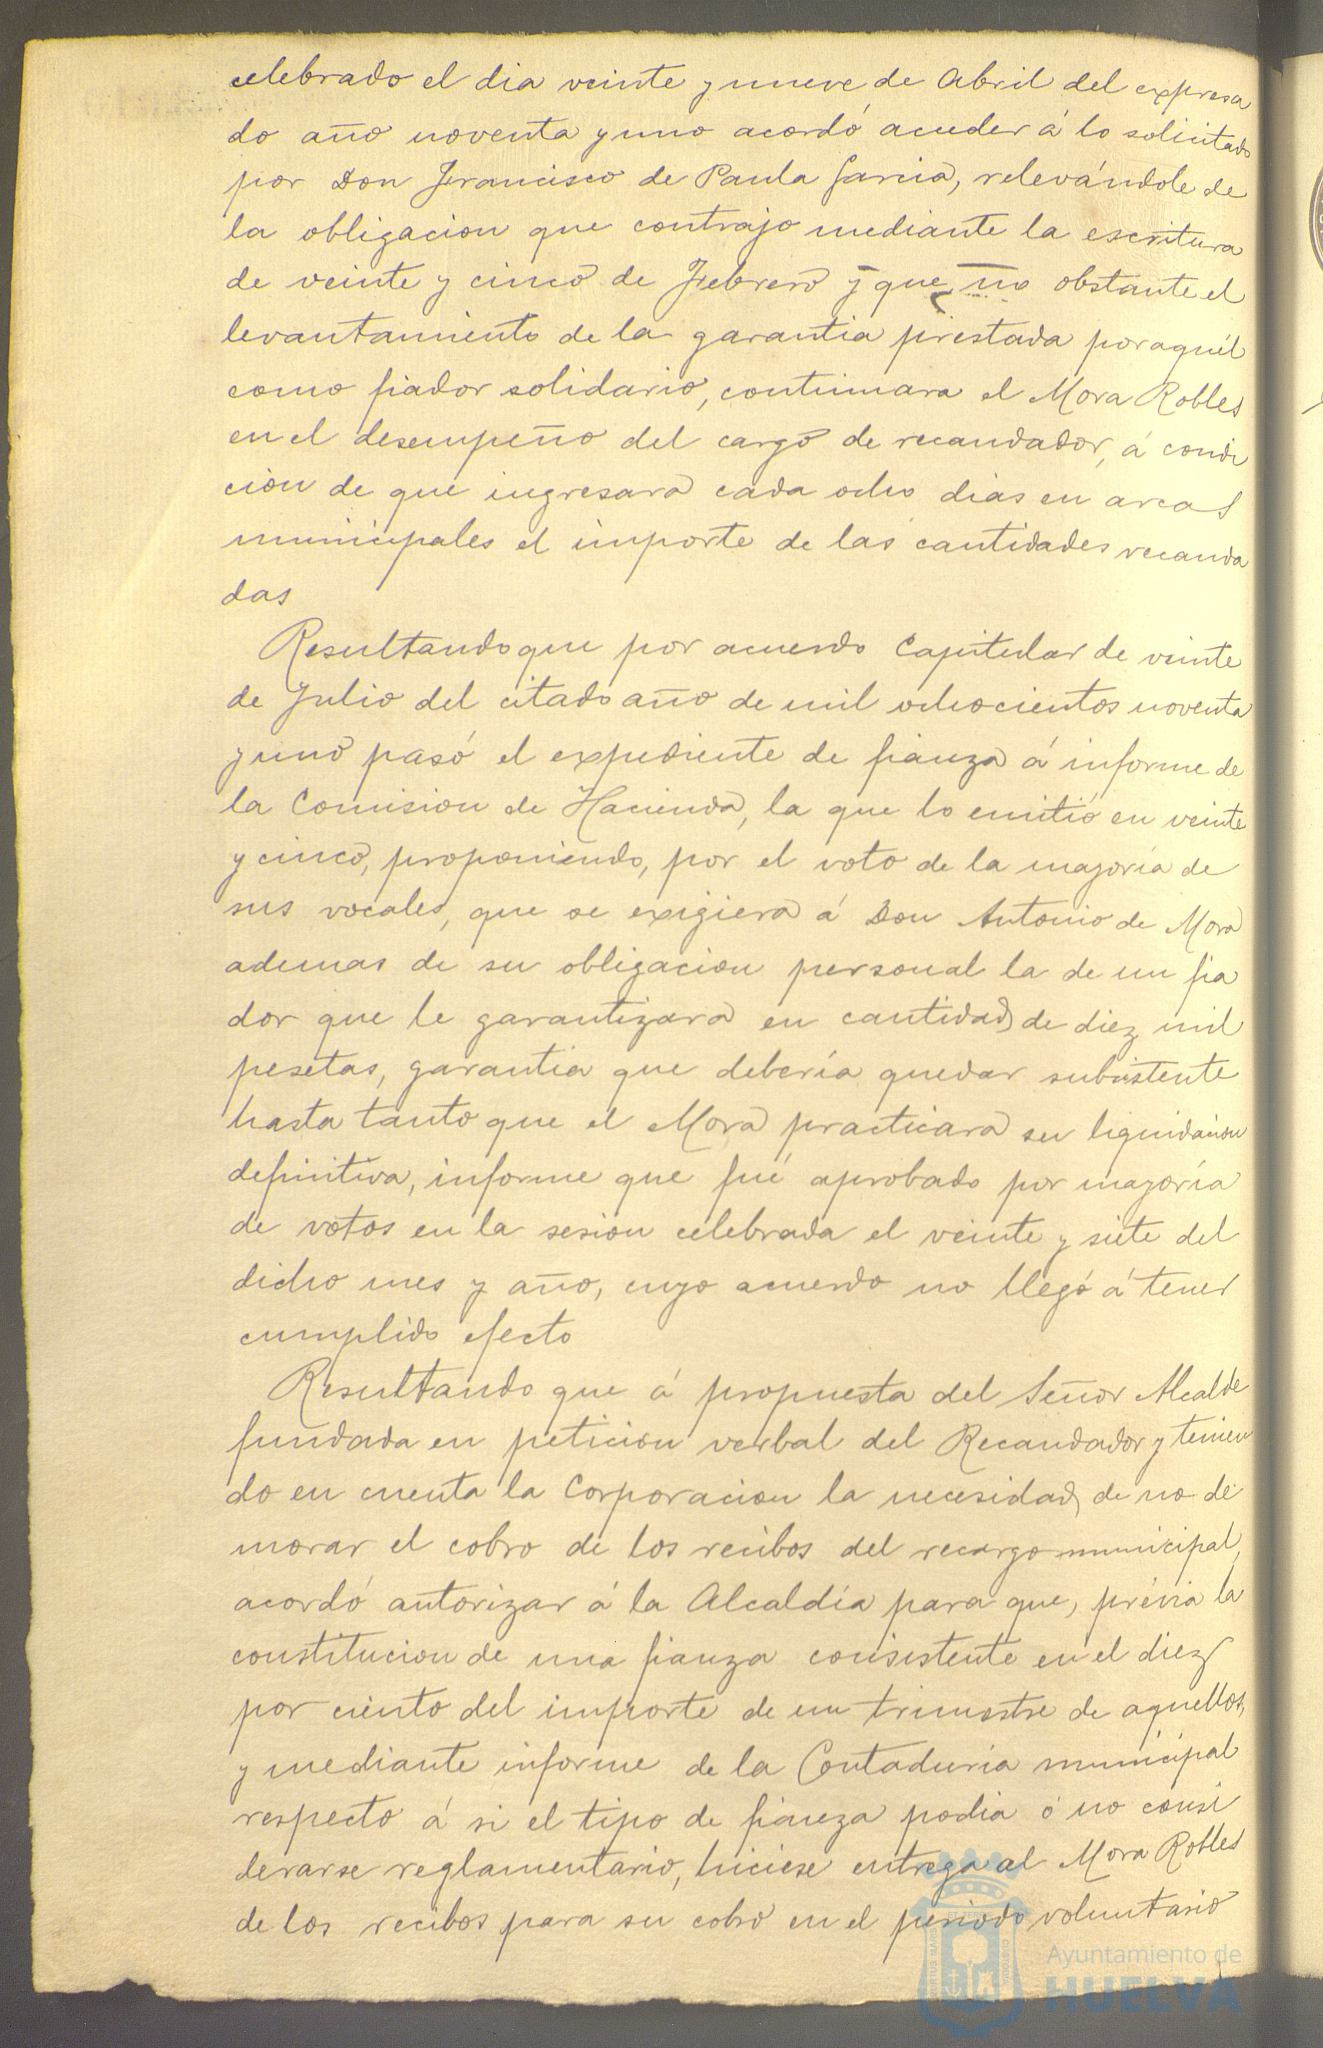 celebrado el dia veinte y nueve de Abril del expresa
do año noventa y uno acordó acceder á lo solicitado
por Don Francisco de Paula Garcia, relevándole de
la obligacion que contrajo mediante la escritura
de veinte y cinco de Febrero y que no obstante el
levantamiento de la garantia prestada por aquél
como fiador solidario, continuara el Mora Robles
en el desempeño del cargo de recaudador, á condi
cion de que ingresara cada ocho dias en arcas
municipales el importe de las cantidades recauda
das
Resultando que por acuerdo Capitular de veinte
de Julio del citado año de mil ochocientos noventa
y uno pasó el expediente de fianza á informe de
la Comision de Hacienda, la que lo emitió en veinte
y cinco, proponiendo, por el voto de la mayoría de
sus vocales, que se exigiera á Don Antonio de Mora
ademas de su obligacion personal la de un fia
dor que le garantizara en cantidad de diez mil
pesetas, garantia que debería quedar subsistente
hasta tanto que el Mora practicara su liquidacion
definitiva, informe que fué aprobado por mayoría
de votos en la sesion celebrada el veinte y siete del
dicho mes y año, cuyo acuerdo no llegó á tener
cumplido efecto
Resultando que á propuesta del Señor Alcalde
fundada en peticion verbal del Recaudador y tenien
do en cuenta la Corporacion la necesidad de no de
morar el cobro de los recibos del recargo municipal,
acordó autorizar á la Alcaldía para que, prévia la
constitucion de una fianza consistente en el diez
por ciento del importe de un trimestre de aquellos,
y mediante informe de la Contaduria municipal
respecto á si el tipo de fianza podia ó no consi
derarse reglamentario, hiciese entrega al Mora Robles
de los recibos para su cobro en el periodo voluntario
Ayuntamiento de
HUELVA